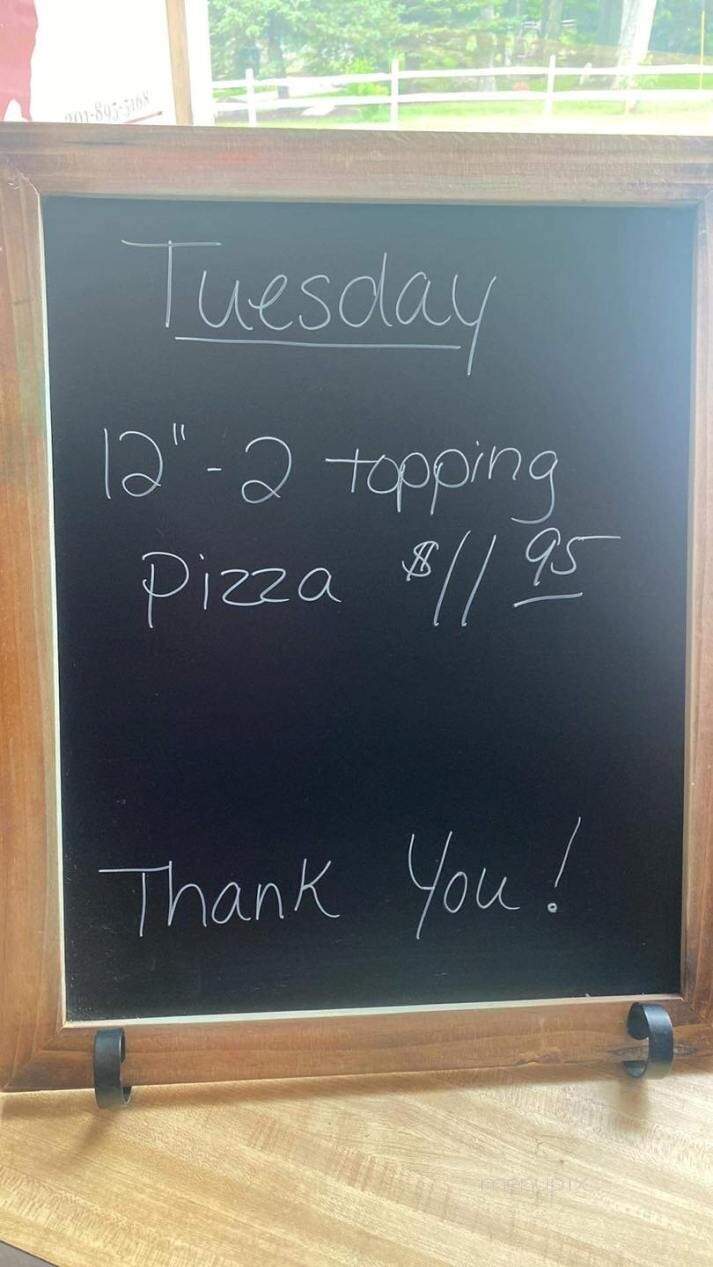 Tuesday
12" - 2 topping
Pizza $11 95
Thank You!
menupix